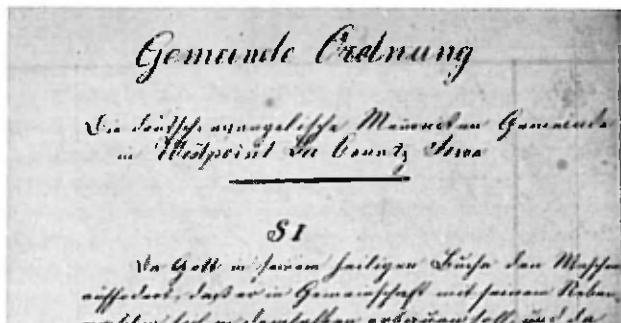 Gemeinde Ordnung
Die deutsch evangelische Menoniten Gemeinde
in Westpoint Lee County Iowa
§ I
Da Gott in seinem heiligen Buche den Menschen
auffodert, daß er in Gemeinschaft mit seinem Neben